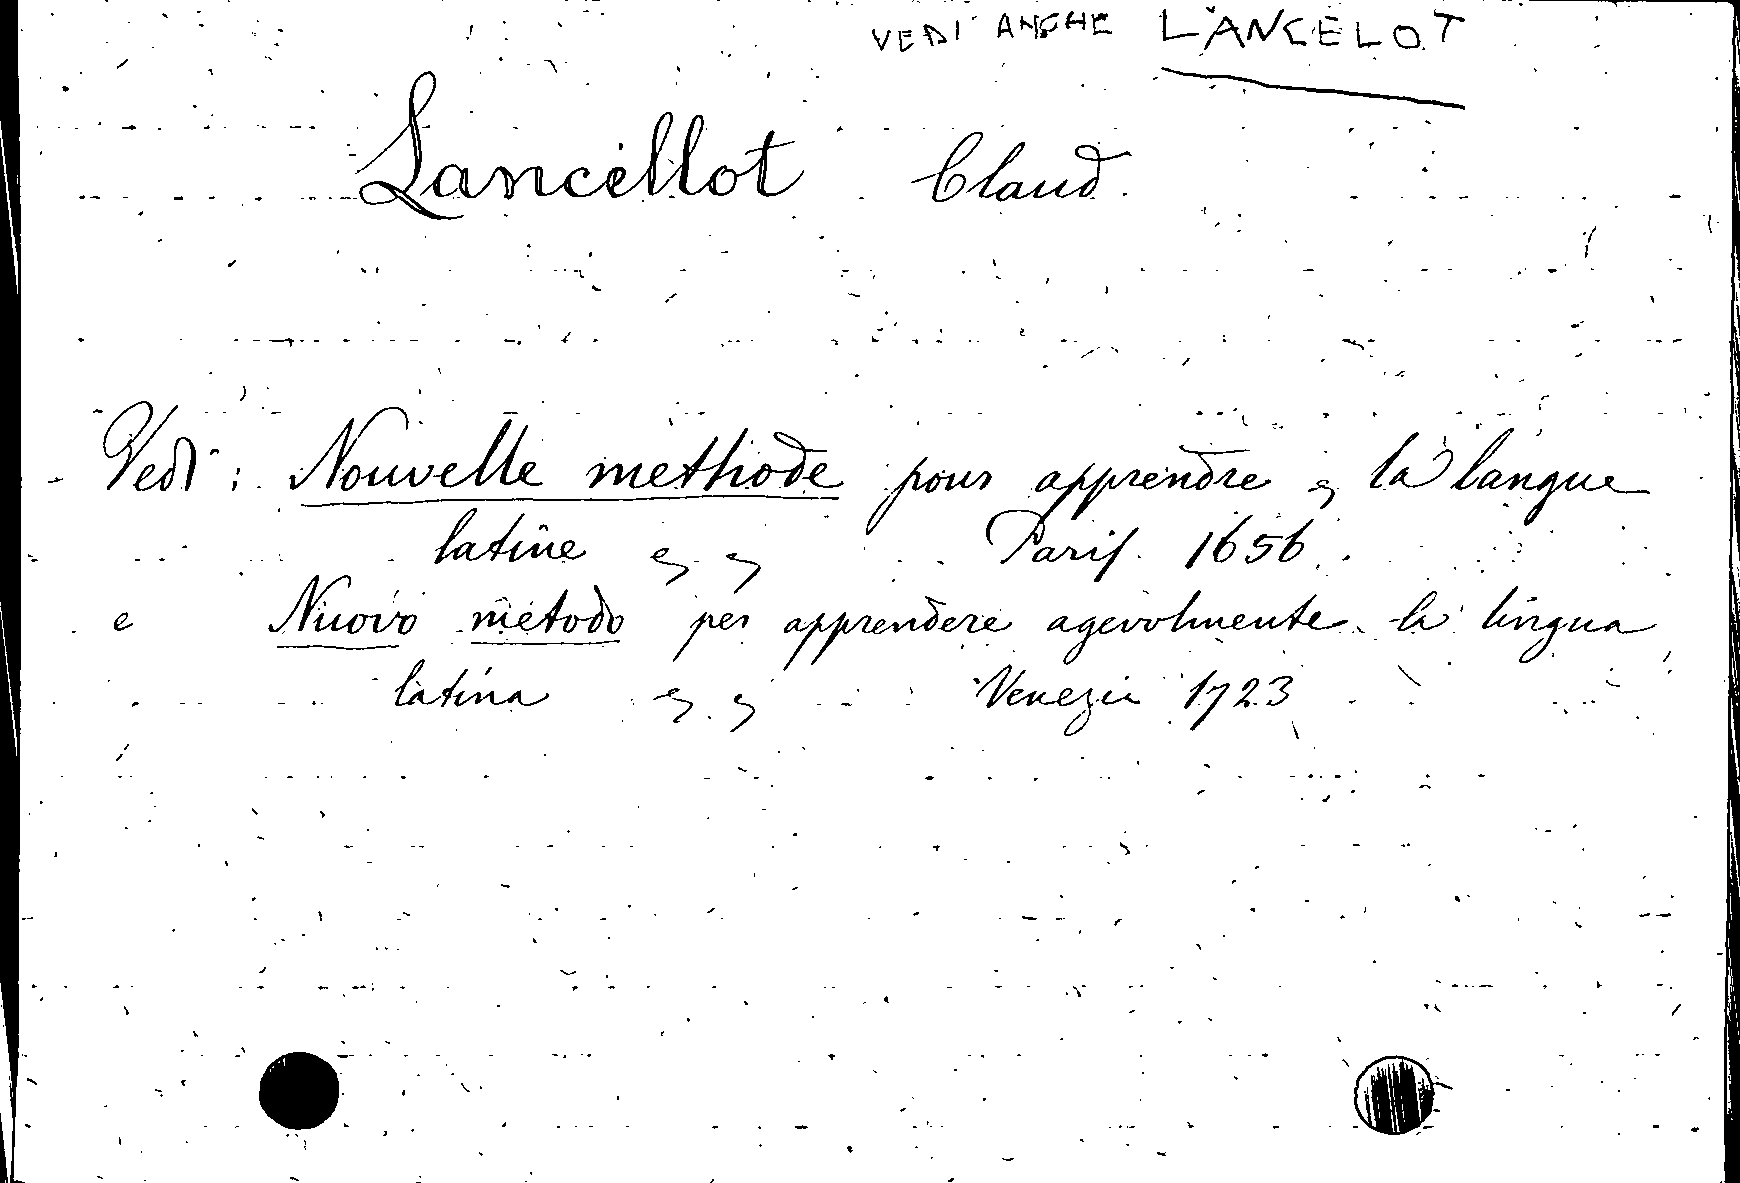 VEDI ANCHE LANCELOT
Lancellot Claud.
Vedi: Nouvelle methode pour apprendre la langue
latine Paris. 1656.
e Nuovo metodo per apprendere agevolmente la lingua
latina Venezia 1723